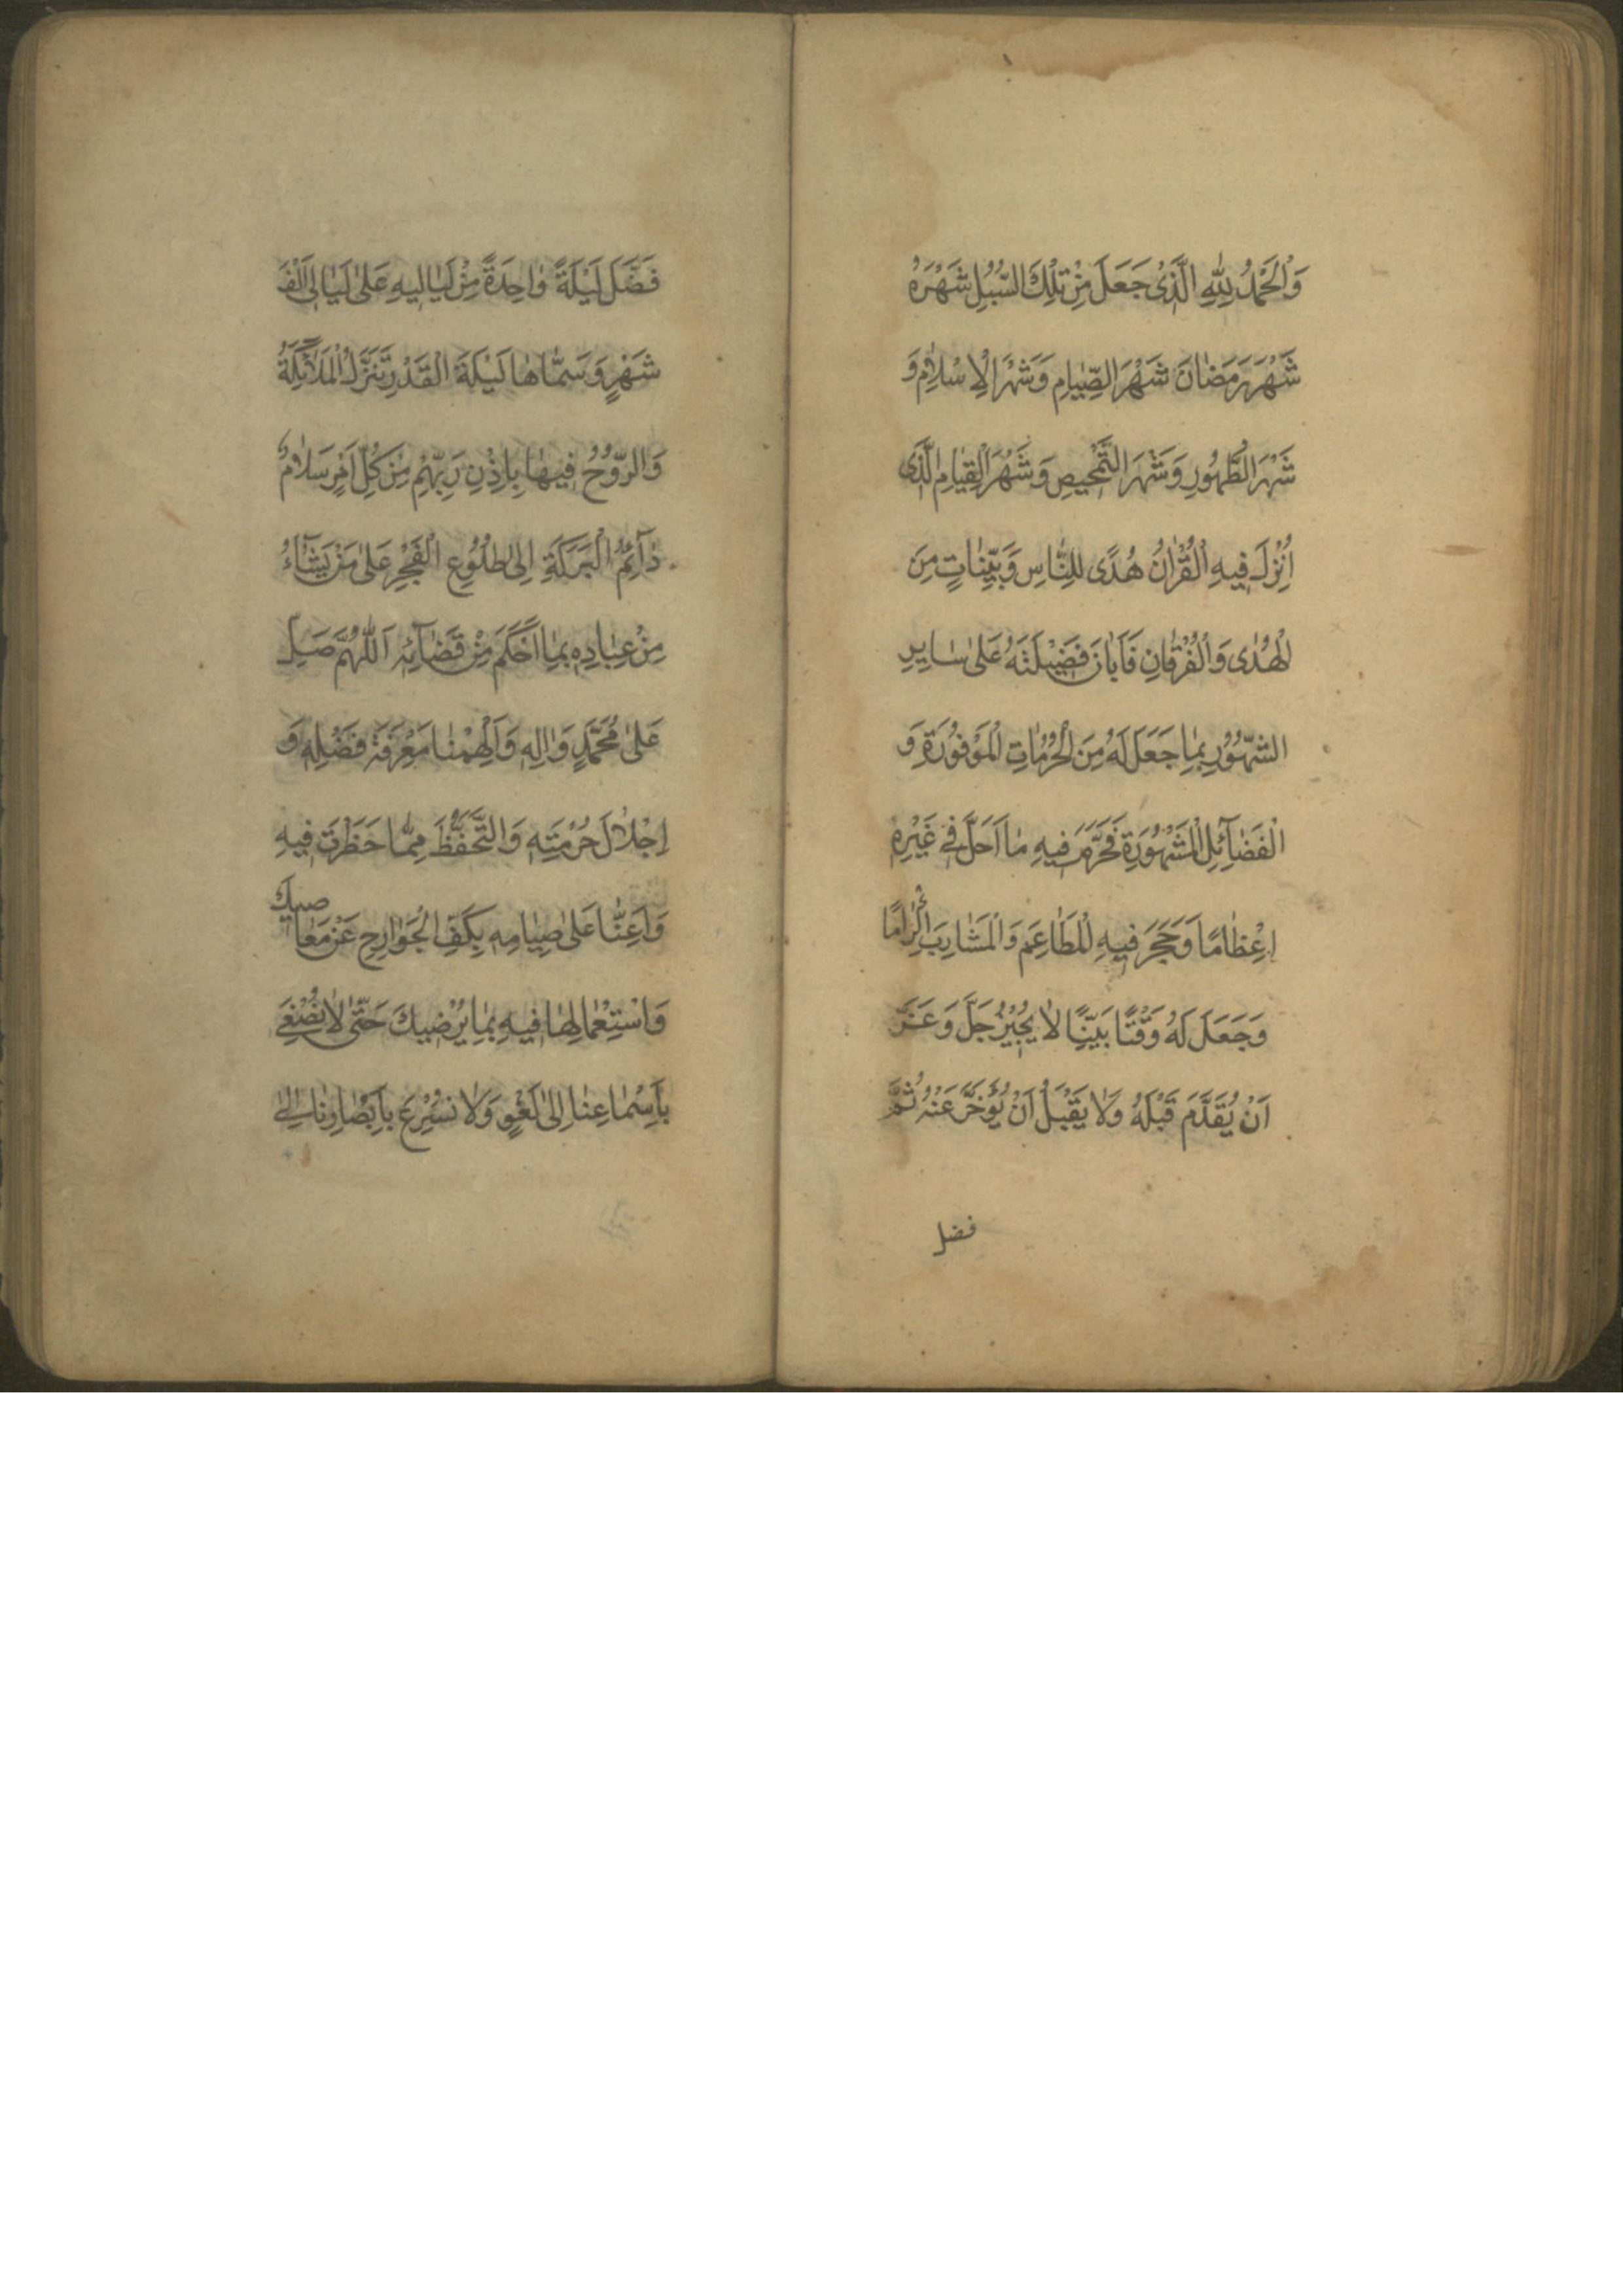 وَالْحَمْدُ لِلّٰهِ الَّذِیْ جَعَلَ مِنْ تِلْكَ السُّبُلِ شَهْرَهُ
شَهْرَ رَمَضٰانَ شَهْرَ الصِّيٰامِ وَشَهْرَ الْاِسْلٰامِ وَ
شَهْرَ الطَّهُورِ وَشَهْرَ التَّمْحيصِ وَشَهْرَ الْقِيٰامِ الَّذَی
اُنْزِلَ فيهِ الْقُرْاٰنُ هُدًى لِلنّٰاسِ وَبَيِّنٰاتٍ مِنَ
الْهُدٰى وَالْفُرْقٰانِ فَاَبٰانَ فَضيْلَتَهُ عَلىٰ سٰايِرِ
الشُّهُوُرِ بِمٰا جَعَلَ لَهُ مِنَ الْحُرُمٰاتِ الْمَوْفُوُرَةِ وَ
الْفَضٰآئِلِ الْمَشْهُوُرَةِ فَحَرَّمَ فيهِ مٰا اَحَلَّ فِے غَيْرِهِ
اِعْظٰامًا وَحَجَرَ فيهِ الْمَطٰاعِمَ وَالْمَشٰارِبَ اِكْرٰامًا
وَجَعَلَ لَهُ وَقْتًا بَيِّنًا لٰا يُجيْزُ جَلَّ وَعَزَّ
اَنْ يُقَدَّمَ قَبْلَهُ وَلٰا يَقْبَلُ اَنْ يُؤَخَّرَ عَنْهُ ثُمَّ
فضل
فَضَّلَ لَيْلَةً وٰاحِدَةً مِنْ لَيٰاليهِ عَلىٰ لَيٰالِی اَلْفِ
شَهْرٍ وَسَمّٰاهٰا لَيْلَةَ الْقَدْرِ تَنَزَّلُ الْمَلٰآئِكَةُ
وَالرُّوُحُ فيهٰا بِاِذْنِ رَبِّهِمْ مِنْ كُلِّ اَمْرٍ سَلٰامٌ
دٰآئِمُ الْبَرَكَةِ اِلىٰ طُلُوُعِ الْفَجْرِ عَلىٰ مَنْ يَشٰآءُ
مِنْ عِبٰادِهِ بِمٰا اَحْكَمَ مِنْ قَضٰآئِهِ اَللّٰهُمَّ صَلِّ
عَلىٰ مُحَمَّدٍ وَاٰلِهِ وَاَلْهِمْنٰا مَعْرِفَةَ فَضْلِهِ وَ
اِجْلٰالَ حُرْمَتِهِ وَالتَّحَفُّظَ مِمّٰا حَظَرْتَ فيهِ
وَاَعِنّٰا عَلىٰ صِيٰامِهِ بِكَفِّ الْجَوٰارِحِ عَنْ مَعٰاصيكَ
وَاسْتِعْمٰالِهٰا فيهِ بِمٰا يُرْضيكَ حَتّٰى لٰا نُصْغِے
بِاَسْمٰاعِنٰا اِلىٰ لَغْوٍ وَلٰا نُسْرِعَ بِاَبْصٰارِنٰا اِلىٰ